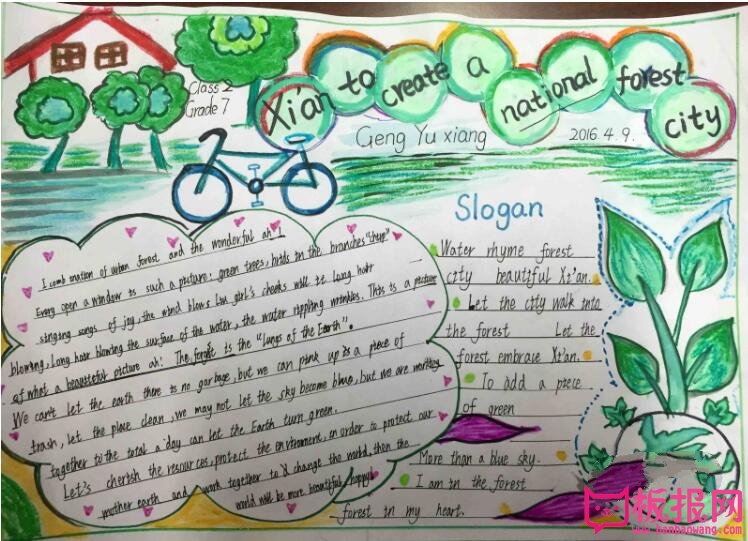 Class 2
Grade 7
Xi'an to create a national forest city
Geng Yu xiang
2016.4.9.
Slogan
Water rhyme forest
city beautiful Xi'an.
Let the city walk into
the forest Let the
forest embrace Xi'an.
To add a piece
of green
More than a blue sky.
I am in the forest
forest in my heart.
I comb nation of urban forest and the wonderful ah!
Every open a window is such a picture: green trees, birds in the branches "chirp"
singing songs of joy, the wind blows Liu girl's cheeks will it Long hair
blowing, Long hair blowing the surface of the water, the water rippling wrinkles. This is a picture
of what a beautiful picture ah! The forest is the "lungs of the Earth".
We can't let the earth there is no garbage, but we can pink up is a piece of
trash, let the place clean, we may not let the sky become blue, but we are working
together to the total a day can let the Earth turn green.
Let's cherish the resources, protect the environment, in order to protect our
mother earth and work together to change the world, then the
world will be more beautiful happy!
板报网
www.banbaowang.com